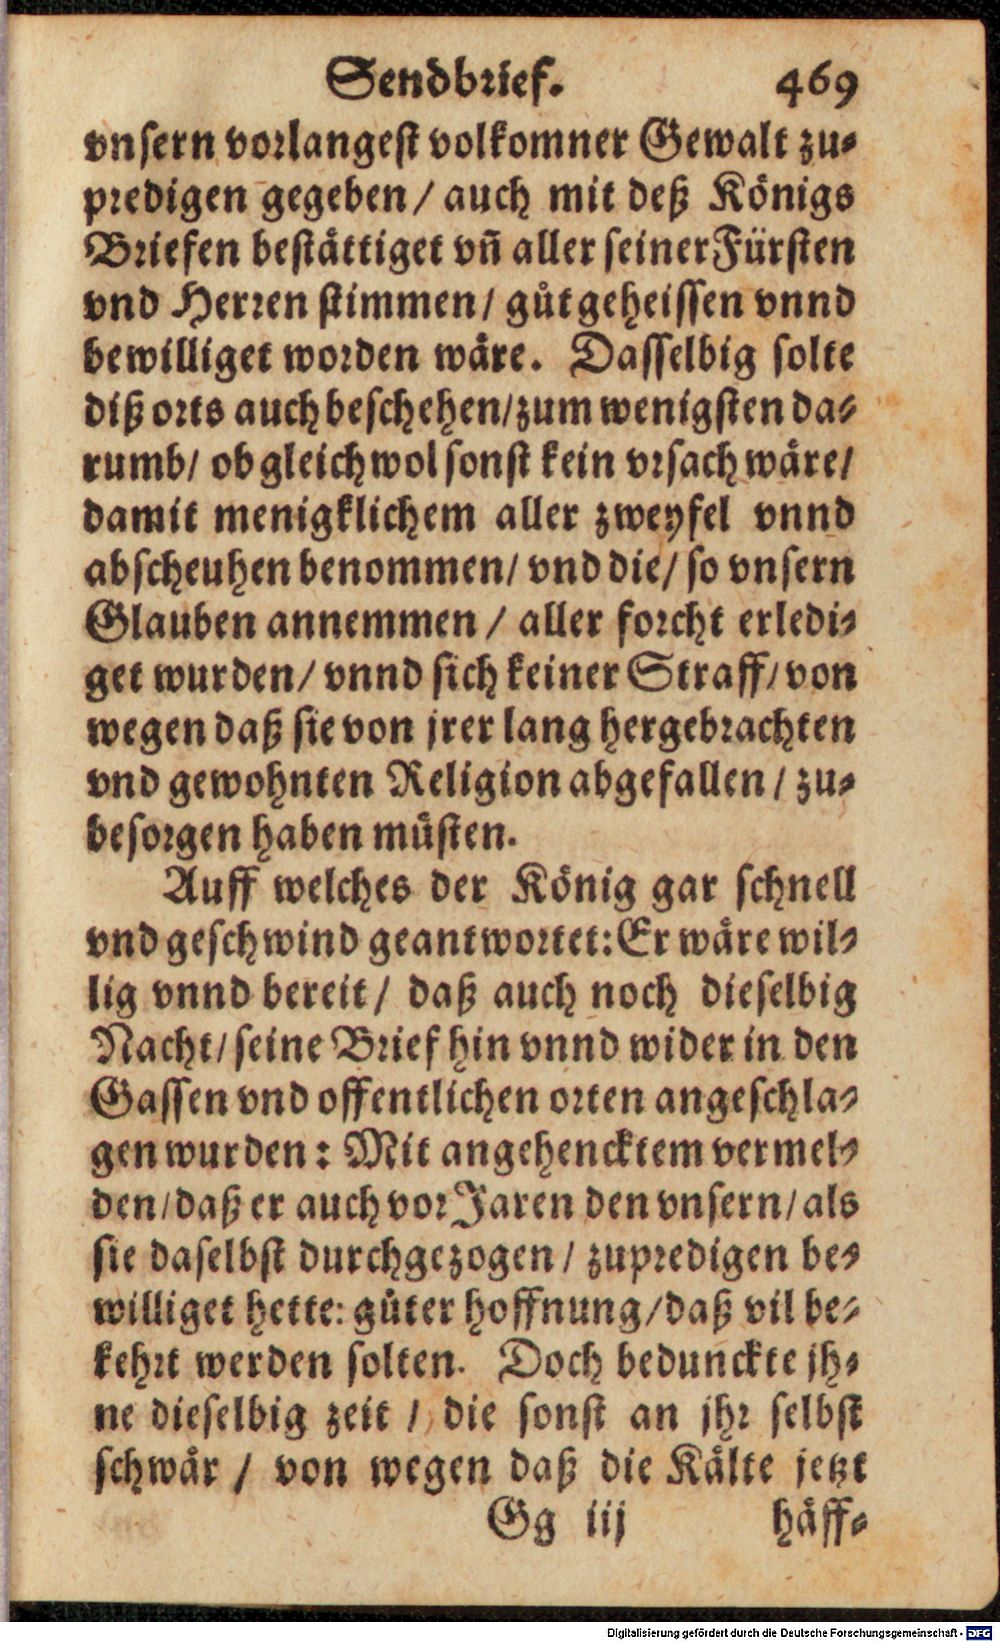 Sendbrief. 469
vnsern vorlangest volkomner Gewalt zu⸗
predigen gegeben / auch mit deß Königs
Briefen bestättiget vn̄ aller seiner Fürsten
vnd Herren stimmen / gůt geheissen vnnd
bewilliget worden wäre. Dasselbig solte
diß orts auch beschehen / zum wenigsten da⸗
rumb / ob gleichwol sonst kein vrsach wäre /
damit menigklichem aller zweyfel vnnd
abscheuhen benommen / vnd die / so vnsern
Glauben annemmen / aller forcht erledi⸗
get wurden / vnnd sich keiner Straff / von
wegen daß sie von jrer lang hergebrachten
vnd gewohnten Religion abgefallen / zu⸗
besorgen haben müsten.
Auff welches der König gar schnell
vnd geschwind geantwortet: Er wäre wil⸗
lig vnnd bereit / daß auch noch dieselbig
Nacht / seine Brief hin vnnd wider in den
Gassen vnd offentlichen orten angeschla⸗
gen wurden: Mit angehencktem vermel⸗
den / daß er auch vor Jaren den vnsern / als
sie daselbst durchgezogen / zupredigen be⸗
williget hette: gůter hoffnung / daß vil be⸗
kehrt werden solten. Doch bedunckte jh⸗
ne dieselbig zeit / die sonst an jhr selbst
schwär / von wegen daß die Kälte jetzt
Gg iij häff⸗
Digitalisierung gefördert durch die Deutsche Forschungsgemeinschaft - DFG